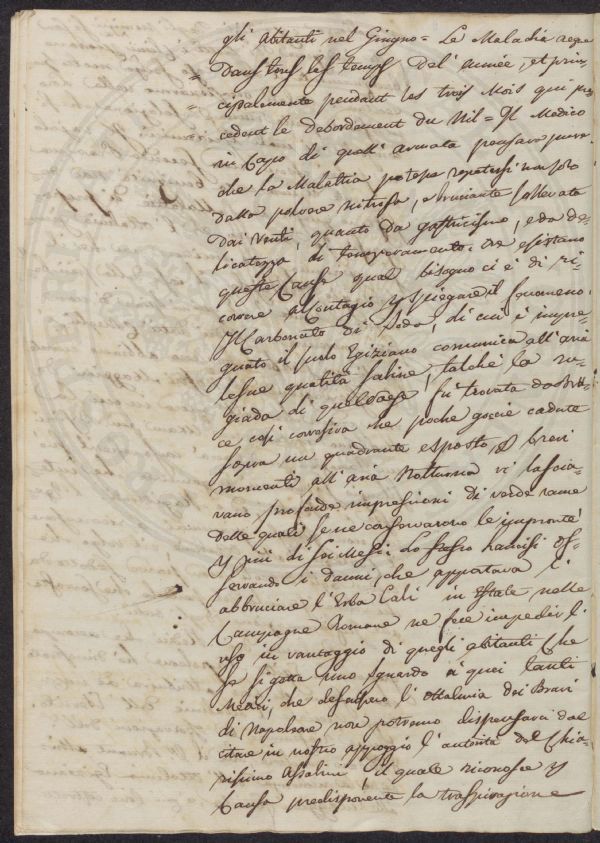 gli abitanti nel Giugno = La Maladie regne
dans tous les temps de l'année, et prin-
cipalement pendant les trois Mois qui pre-
cedent le debordement du Nil = Il Medico
in Capo di quell' armata pensava pure
che la Malattia potesse ripetersi non solo
dalla polvere nitrosa, e bruciante sollevata
dai Venti, quanto da gastricismo, e da de-
licatezza di temperamento. Ove esistano
queste Cause qual bisogno ci è di ri-
correre al Contagio per spiegare il fenomeno.
Il Carbonato di Soda, di cui è impre-
gnato il suolo Egiziano comunica all'aria
le sue qualità saline, talchè la ru-
giada di quel paese fu trovata da
ce così corrosiva che poche goccie cadute
sopra un quadrante esposto, per brevi
momenti all'aria notturna vi lascia-
vano profonde impressioni di verde rame
delle quali se ne conservarono le impronte
per più di sei Mesi. Lo stesso os-
servando i danni, che apportava l'
abbruciare l'Erba Cali in estate nelle
Campagne Romane ne fece impedir l'
uso in vantaggio di quegli abitanti Che
se si getta uno sguardo a quei tanti
Medici, che descrissero l'ottalmia dei Bravi
di Napoleone non potremo dispensarci dal
citare in nostro appoggio l'autorità del Chia-
rissimo Assalini, il quale riconosce per
Causa predisponente la traspirazione